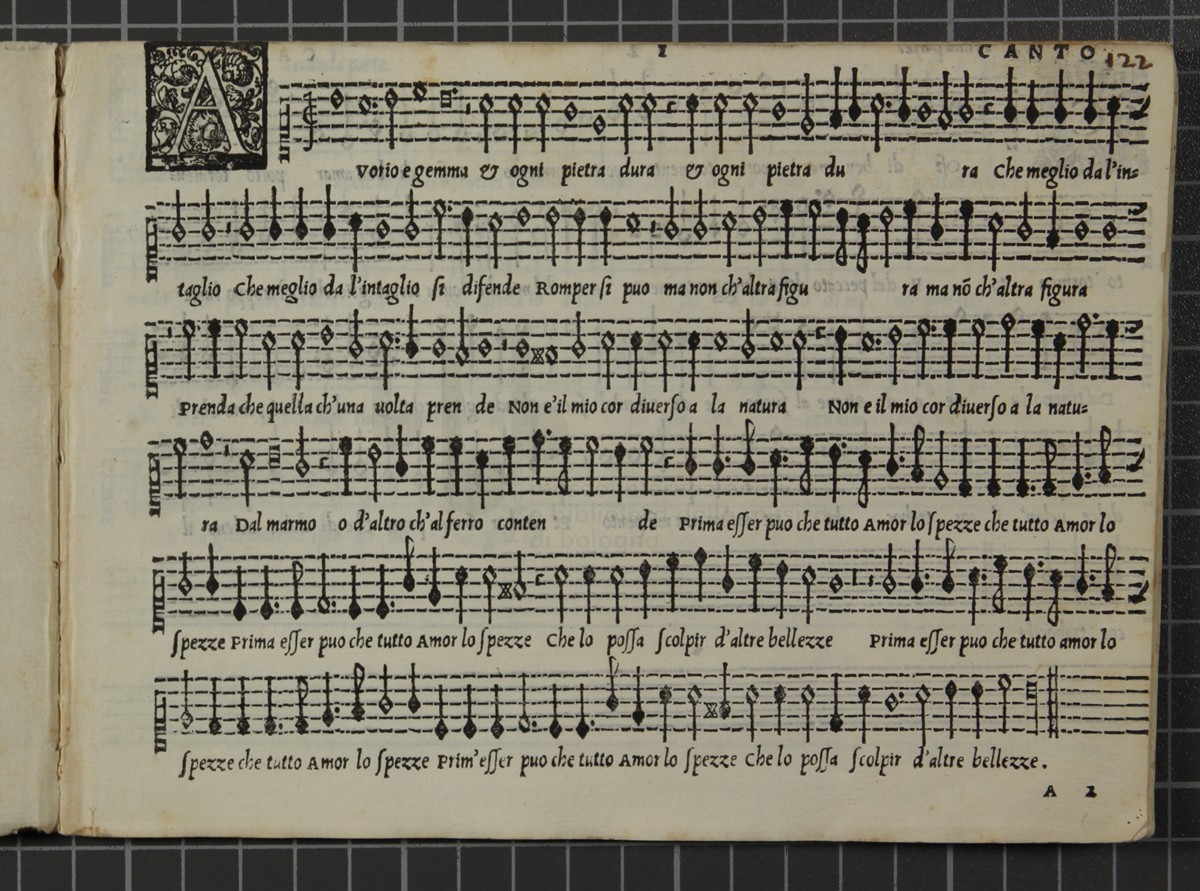 I CANTO 122
A
vorio e gemma & ogni pietra dura & ogni pietra du ra Che meglio da l'in=
taglio Che meglio da l'intaglio si difende Romper si puo ma non ch'altra figu ra ma nõ ch'altra figura
Prenda che quella ch'una uolta pren de Non e'il mio cor diuerso a la natura Non e il mio cor diuerso a la natu=
ra Dal marmo o d'altro ch'al ferro conten de Prima esser puo che tutto Amor lo spezze che tutto Amor lo
spezze Prima esser puo che tutto Amor lo spezze Che lo possa scolpir d'altre bellezze Prima esser puo che tutto amor lo
spezze che tutto Amor lo spezze Prim'esser puo che tutto Amor lo spezze Che lo possa scolpir d'altre bellezze.
A 2